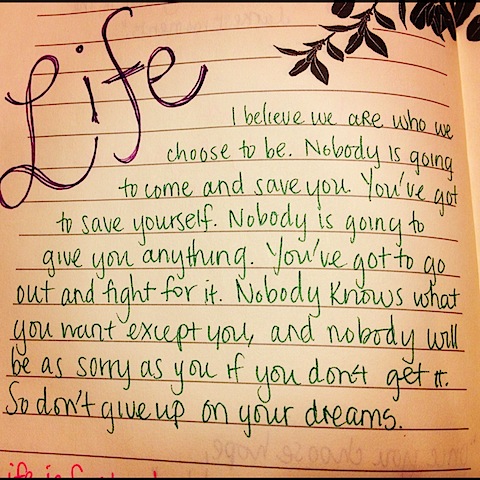 Life
I believe we are who we
choose to be. Nobody is going
to come and save you. You've got
to save yourself. Nobody is going to
give you anything. You've got to go
out and fight for it. Nobody knows what
you want except you, and nobody will
be as sorry as you if you don't get it.
So don't give up on your dreams.